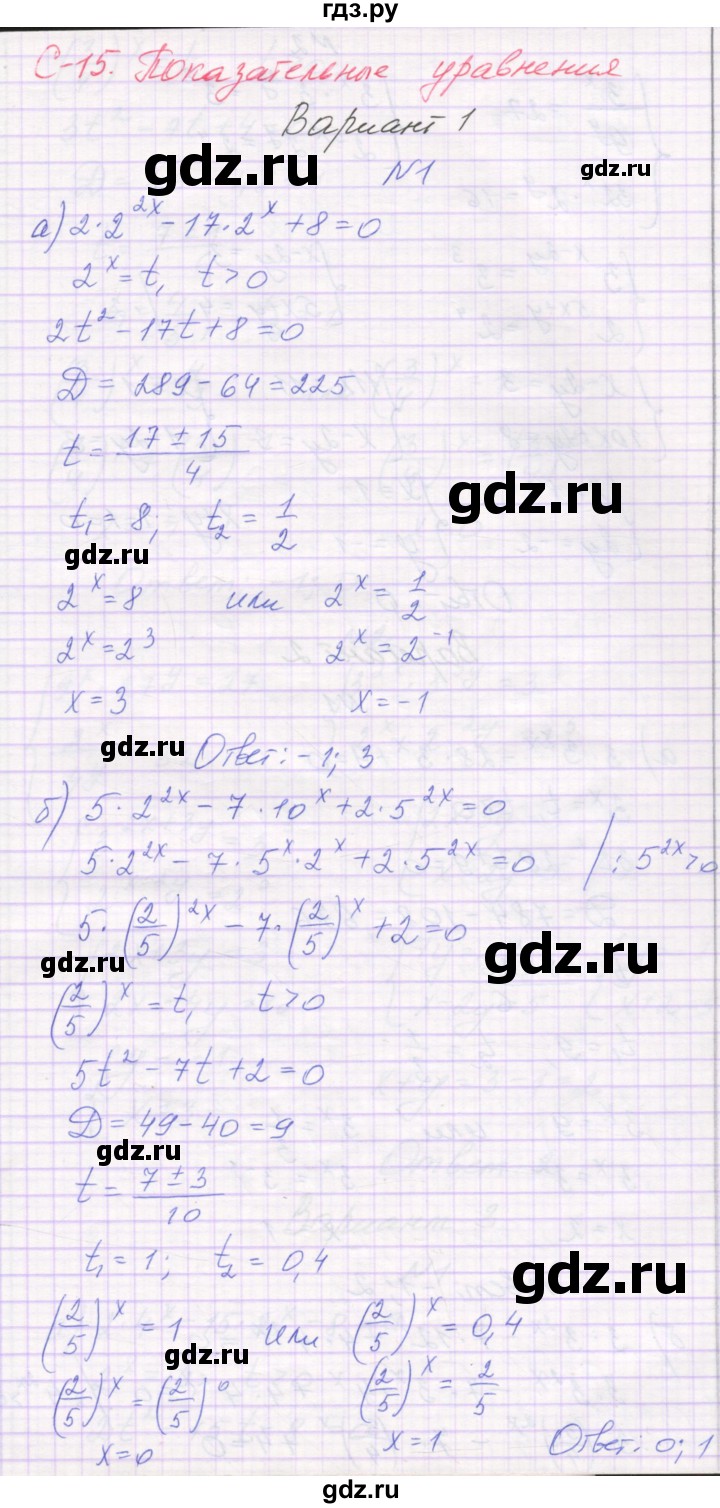 гдз.ру
С-15. Показательные уравнения
Вариант 1
gdz.ru
gdz.ru
№1
а) 2·2^{2x} − 17·2^x + 8 = 0
2^x = t, t > 0
2t² − 17t + 8 = 0
Д = 289 − 64 = 225
t = \frac{17 ± 15}{4}
gdz.ru
t₁ = 8; t₂ = \frac{1}{2}
gdz.ru
2^x = 8 или 2^x = \frac{1}{2}
2^x = 2³ 2^x = 2^{-1}
x = 3 x = −1
gdz.ru
Ответ: −1; 3
б) 5·2^{2x} − 7·10^x + 2·5^{2x} = 0
5·2^{2x} − 7·5^x·2^x + 2·5^{2x} = 0 /: 5^{2x} > 0
5·(\frac{2}{5})^{2x} − 7·(\frac{2}{5})^x + 2 = 0
gdz.ru
gdz.ru
(\frac{2}{5})^x = t, t > 0
5t² − 7t + 2 = 0
Д = 49 − 40 = 9
gdz.ru
t = \frac{7 ± 3}{10}
t₁ = 1; t₂ = 0,4
gdz.ru
(\frac{2}{5})^x = 1 или (\frac{2}{5})^x = 0,4
gdz.ru
(\frac{2}{5})^x = (\frac{2}{5})^0 (\frac{2}{5})^x = \frac{2}{5}
x = 0 x = 1 Ответ: 0; 1
gdz.ru